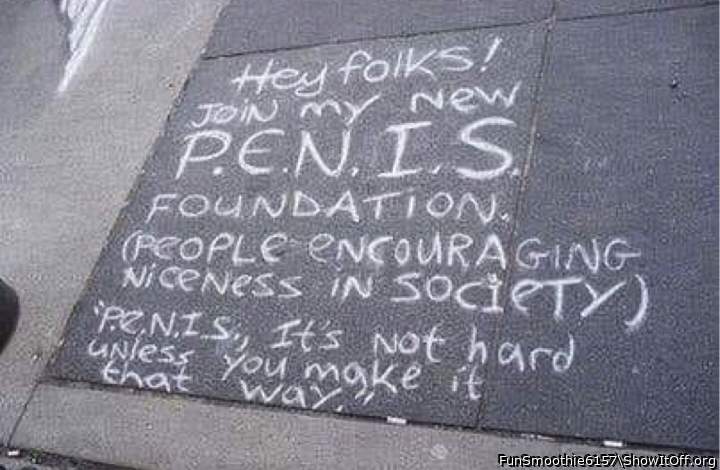 Hey folks!
JOiN my New
P.E.N.I.S.
FOUNDATiON.
(PEOPLE ENCOURAGING
NiCeNess iN SOCiETY)
"P.E.N.I.S., It's Not hard
uNless You make it
that way."
FunSmoothie6157\ShowItOff.org